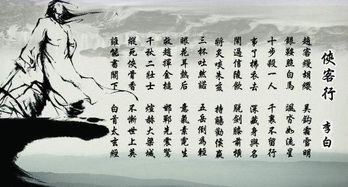 俠客行 李白
趙客縵胡纓 吳鉤霜雪明
銀鞍照白馬 颯沓如流星
十步殺一人 千裏不留行
事了拂衣去 深藏身與名
閑過信陵飲 脫劍膝前橫
將炙啖朱亥 持觴勸侯嬴
三杯吐然諾 五岳倒為輕
眼花耳熱後 意氣素霓生
救趙揮金槌 邯鄲先震驚
千秋二壯士 烜赫大梁城
縱死俠骨香 不慚世上英
誰能書閣下 白首太玄經